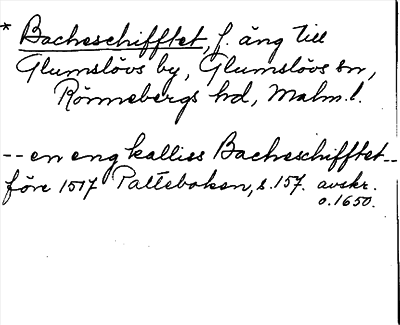 * Bacheschifftet, f. äng till
Glumslövs by, Glumslövs sn,
Rönnebergs hd, Malm.l.
-- en eng kalliss Bacheschifftet --
före 1517 Palteboken, s.157. avskr.
o.1650.